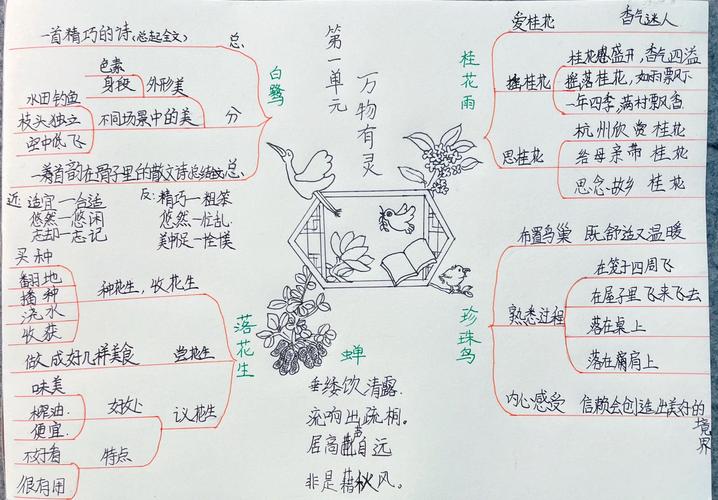 第一单元
万物有灵
白鹭
一首精巧的诗(总起全文) 总
色素
身段
外形美
水田钓鱼
枝头独立
空中低飞
不同场景中的美
分
一首韵在骨子里的散文诗总结全文 总
近 适宜一合适
悠然一悠闲
忘却一忘记
反:精巧一粗笨
悠然一忙乱
美中不足一
落花生
买种
翻地
播种
浇水
收获
种花生,收花生
做成好几样美食 尝花生
味美
榨油
便宜
好处
不好看
很有用
特点
议花生
桂花雨
爱桂花 香气迷人
摇桂花
桂花盛开,香气四溢
摇落桂花,如雨飘下
一年四季,满村飘香
思桂花
杭州欣赏桂花
给母亲带桂花
思念故乡桂花
珍珠鸟
布置鸟巢 既舒适又温暖
熟悉过程
在笼子四周飞
在屋子里飞来飞去
落在桌上
落在肩上
内心感受 信赖会创造出美好的境界
蝉
垂緌饮清露.
流响出疏桐.
居高声自远
非是藉秋风。